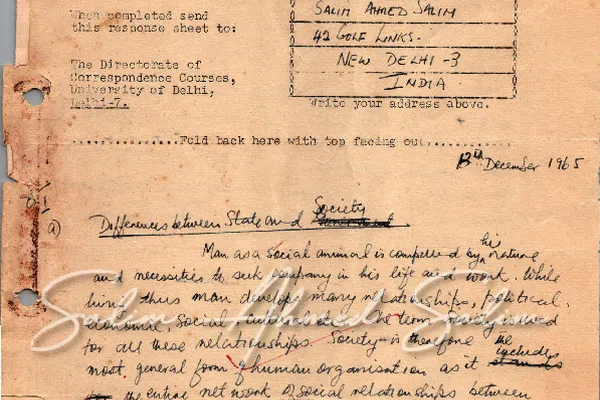 When completed send
this response sheet to:
The Directorate of
Correspondence Courses,
University of Delhi,
Delhi-7.
SALIM AHMED SALIM
42 GOLF LINKS.
NEW DELHI -3
INDIA
Write your address above.
Fold back here with top facing out
13th December 1965
Differences between State and Society
Man as a social animal is compelled by his nature
and necessities to seek company in his life and work. While
living thus man develops many relationships, political,
economic, social, cultural etc. The term society is used
for all these relationships. Society is therefore the
most general form of human organisation as it includes
the entire network of social relationships between
Salim Ahmed Salim